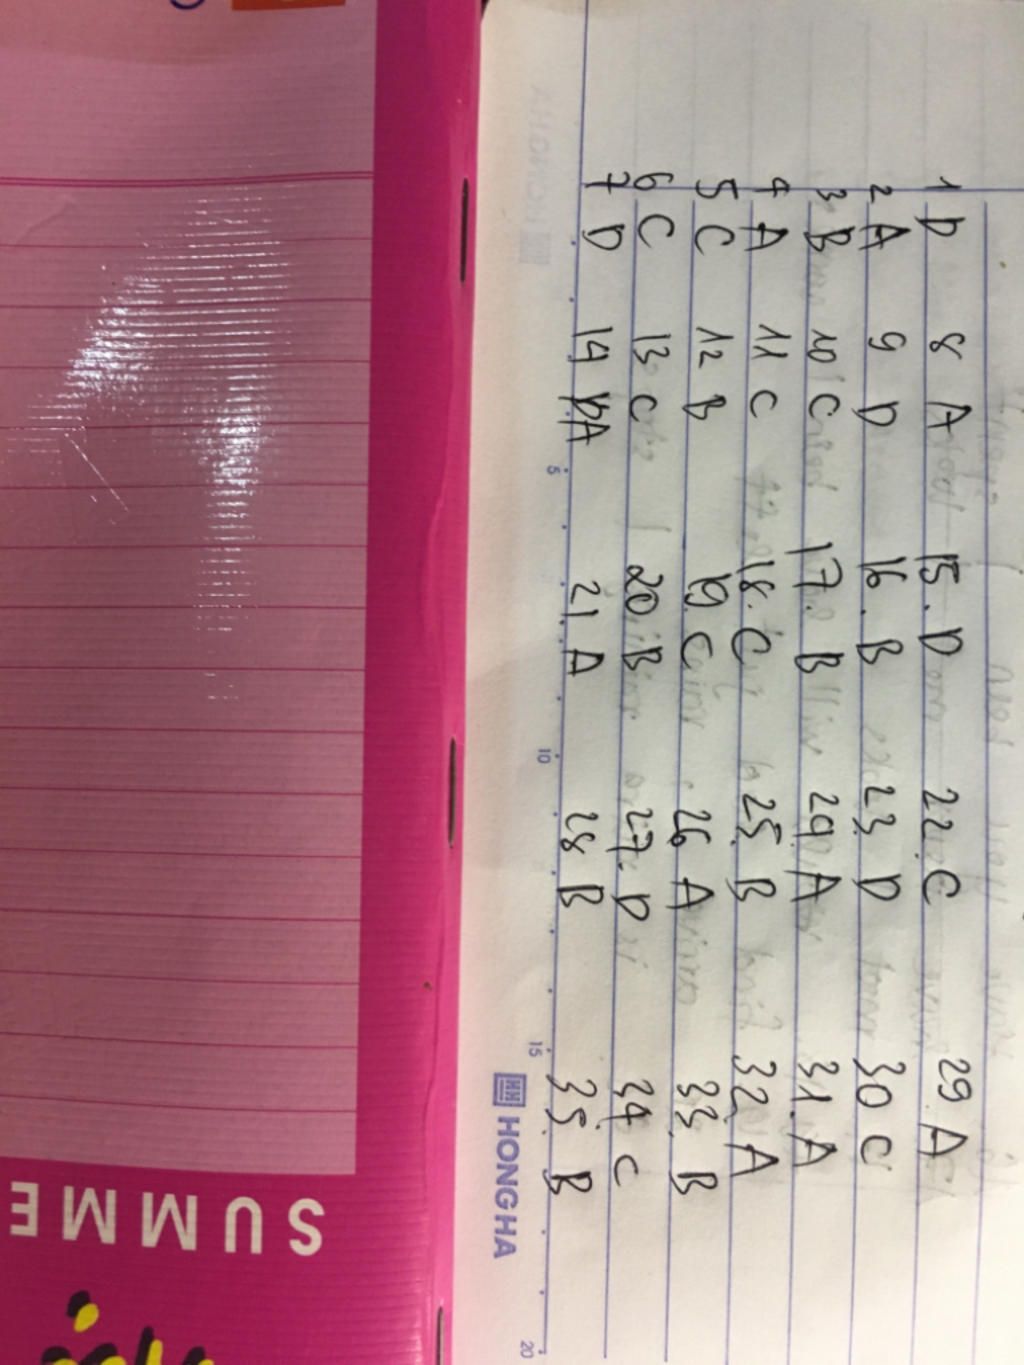 1 D 8 A 15. D 22. C 29. A
2 A 9 D 16. B 23. D 30 C
3 B 10 C 17. B 29 A 31. A
4 A 11 C 18. C 25. B 32. A
5 C 12 B 19. C 26 A 33. B
6 C 13 C 20 B 27. D 34 C
7 D 14 A 21. A 28 B 35. B
5 10 15 20
HH HONG HA
SUMME